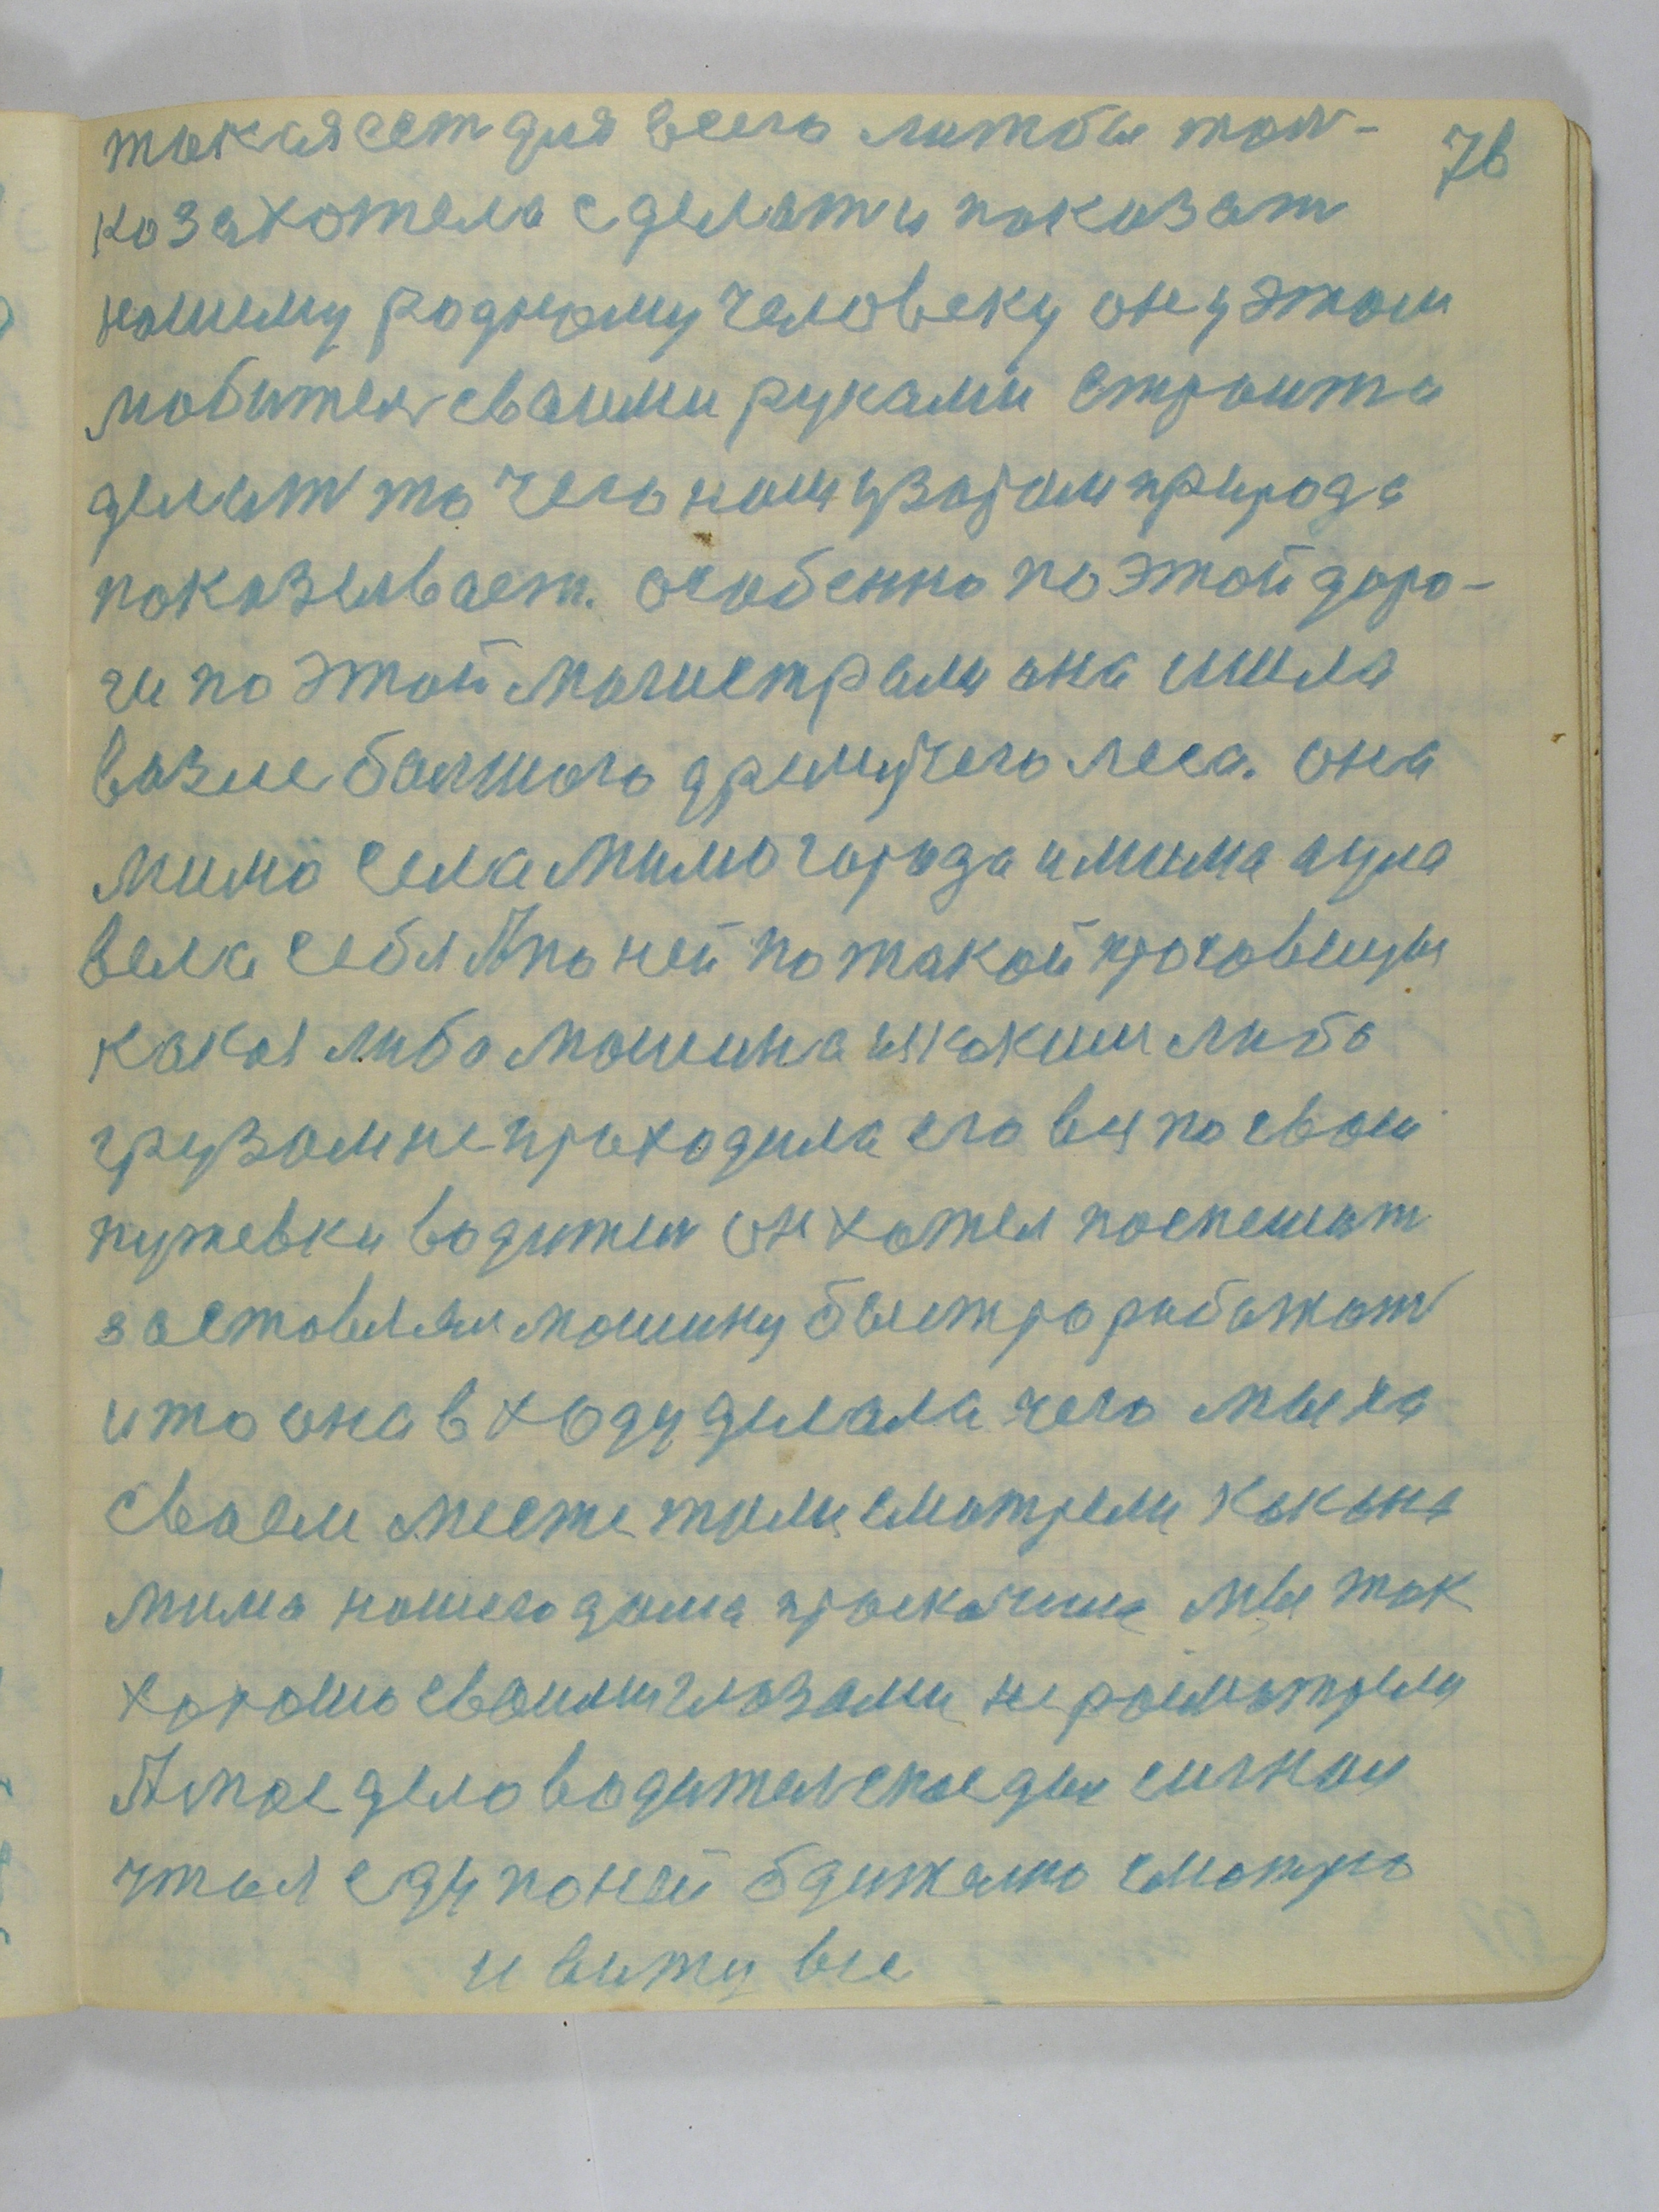 76
такая сет для всего литбы тол-
ко захотела сделат и показат
нашему родному человеку он у этом
любител сваими руками строит и
делит то чего нам узорам природа
показывает. особенно по этой даро-
ги по этой магистрали она ишла
вазле балшого дримучего леса. она
мимо села мимо города и мима аула
вела себя А по ней по такой
какая либо машина ни каким либо
грузам не праходила его вы по сваи
путевки водител он хател поспешит
заставлял машину быстро работат
и то она в ходу делала чего мы на
сваем месте там смотрели как она
мима нашего дома праскачила мы так
харошо сваими глазами не расматрели
А мое дело водителское дал сигнал
что я еду по ней бдително смотрю
и виту все